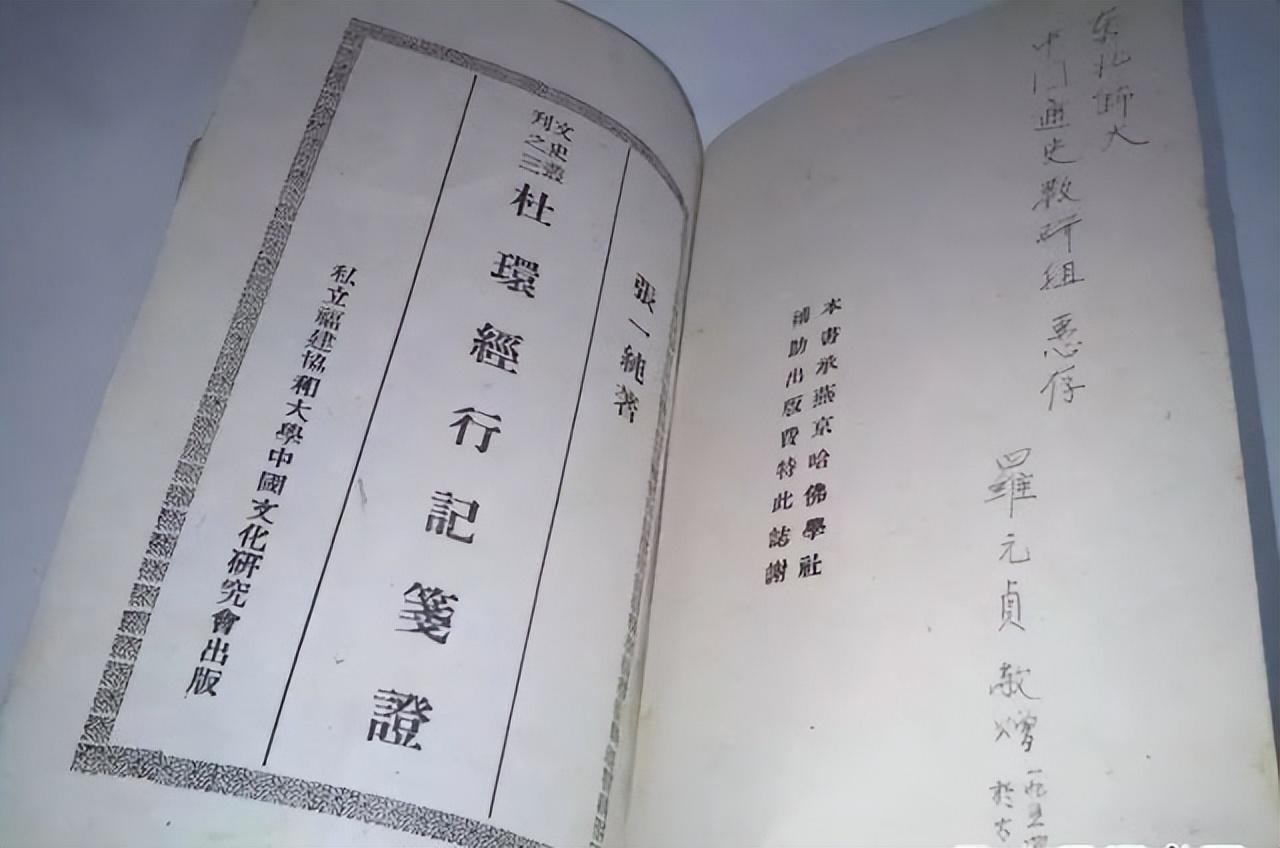 东北師大
中国通史教研組 惠存
羅元貞 敬贈 一九五
於
本書承燕京哈佛學社
補助出版費特此誌謝
張一純著
文史叢
刊之三
杜環經行記箋證
私立福建協和大學中國文化研究會出版